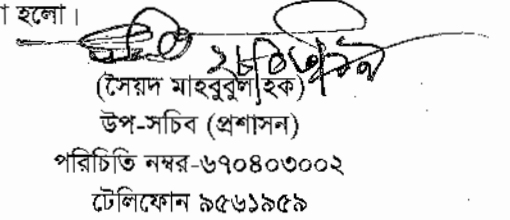 হলো।
(সৈয়দ মাহবুবুল হক)
উপ-সচিব (প্রশাসন)
পরিচিতি নম্বর-৬৭০৪০৩০০২
টেলিফোন ৯৫৬১৯৫৯